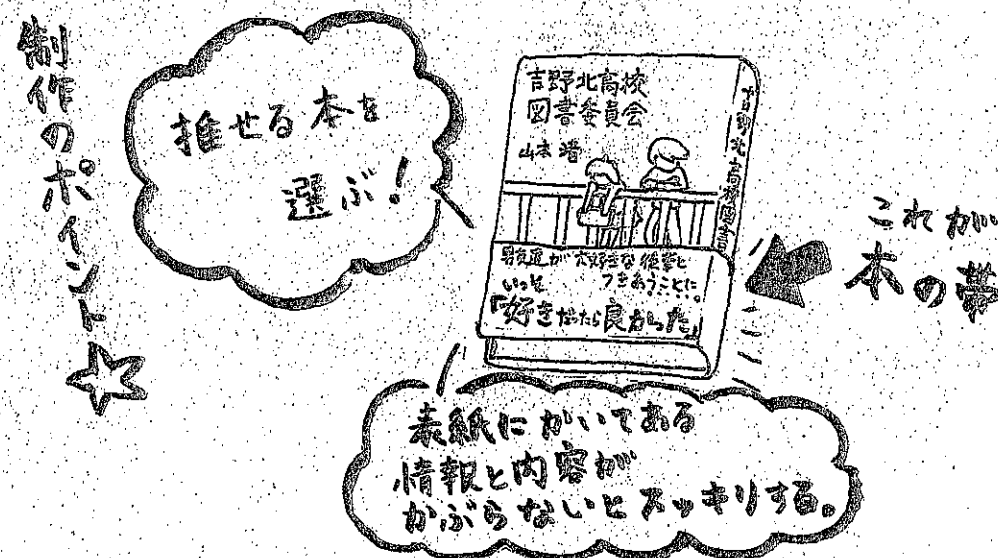 制作のポイント☆
推せる本を
選ぶ!
吉野北高校
図書委員会
山本 渚
男友達が大好きな後輩と
つきあうことに…。
いっそ
「好きだったら良かった」
これが
本の帯
表紙にかいてある
情報と内容が
かぶらないとスッキリする。